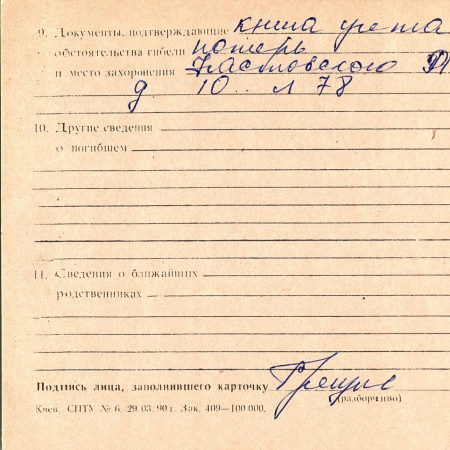 9. Документы, подтверждающие книга учета
обстоятельства гибели потерь
и место захоронения
д. 10.. л 78
10. Другие сведения
о погибшем
11. Сведения о ближайших
родственниках
Подпись лица, заполнившего карточку
(разборчиво)
Киев. СПТУ № 6. 29.03.90 г. Зак. 409—100 000.